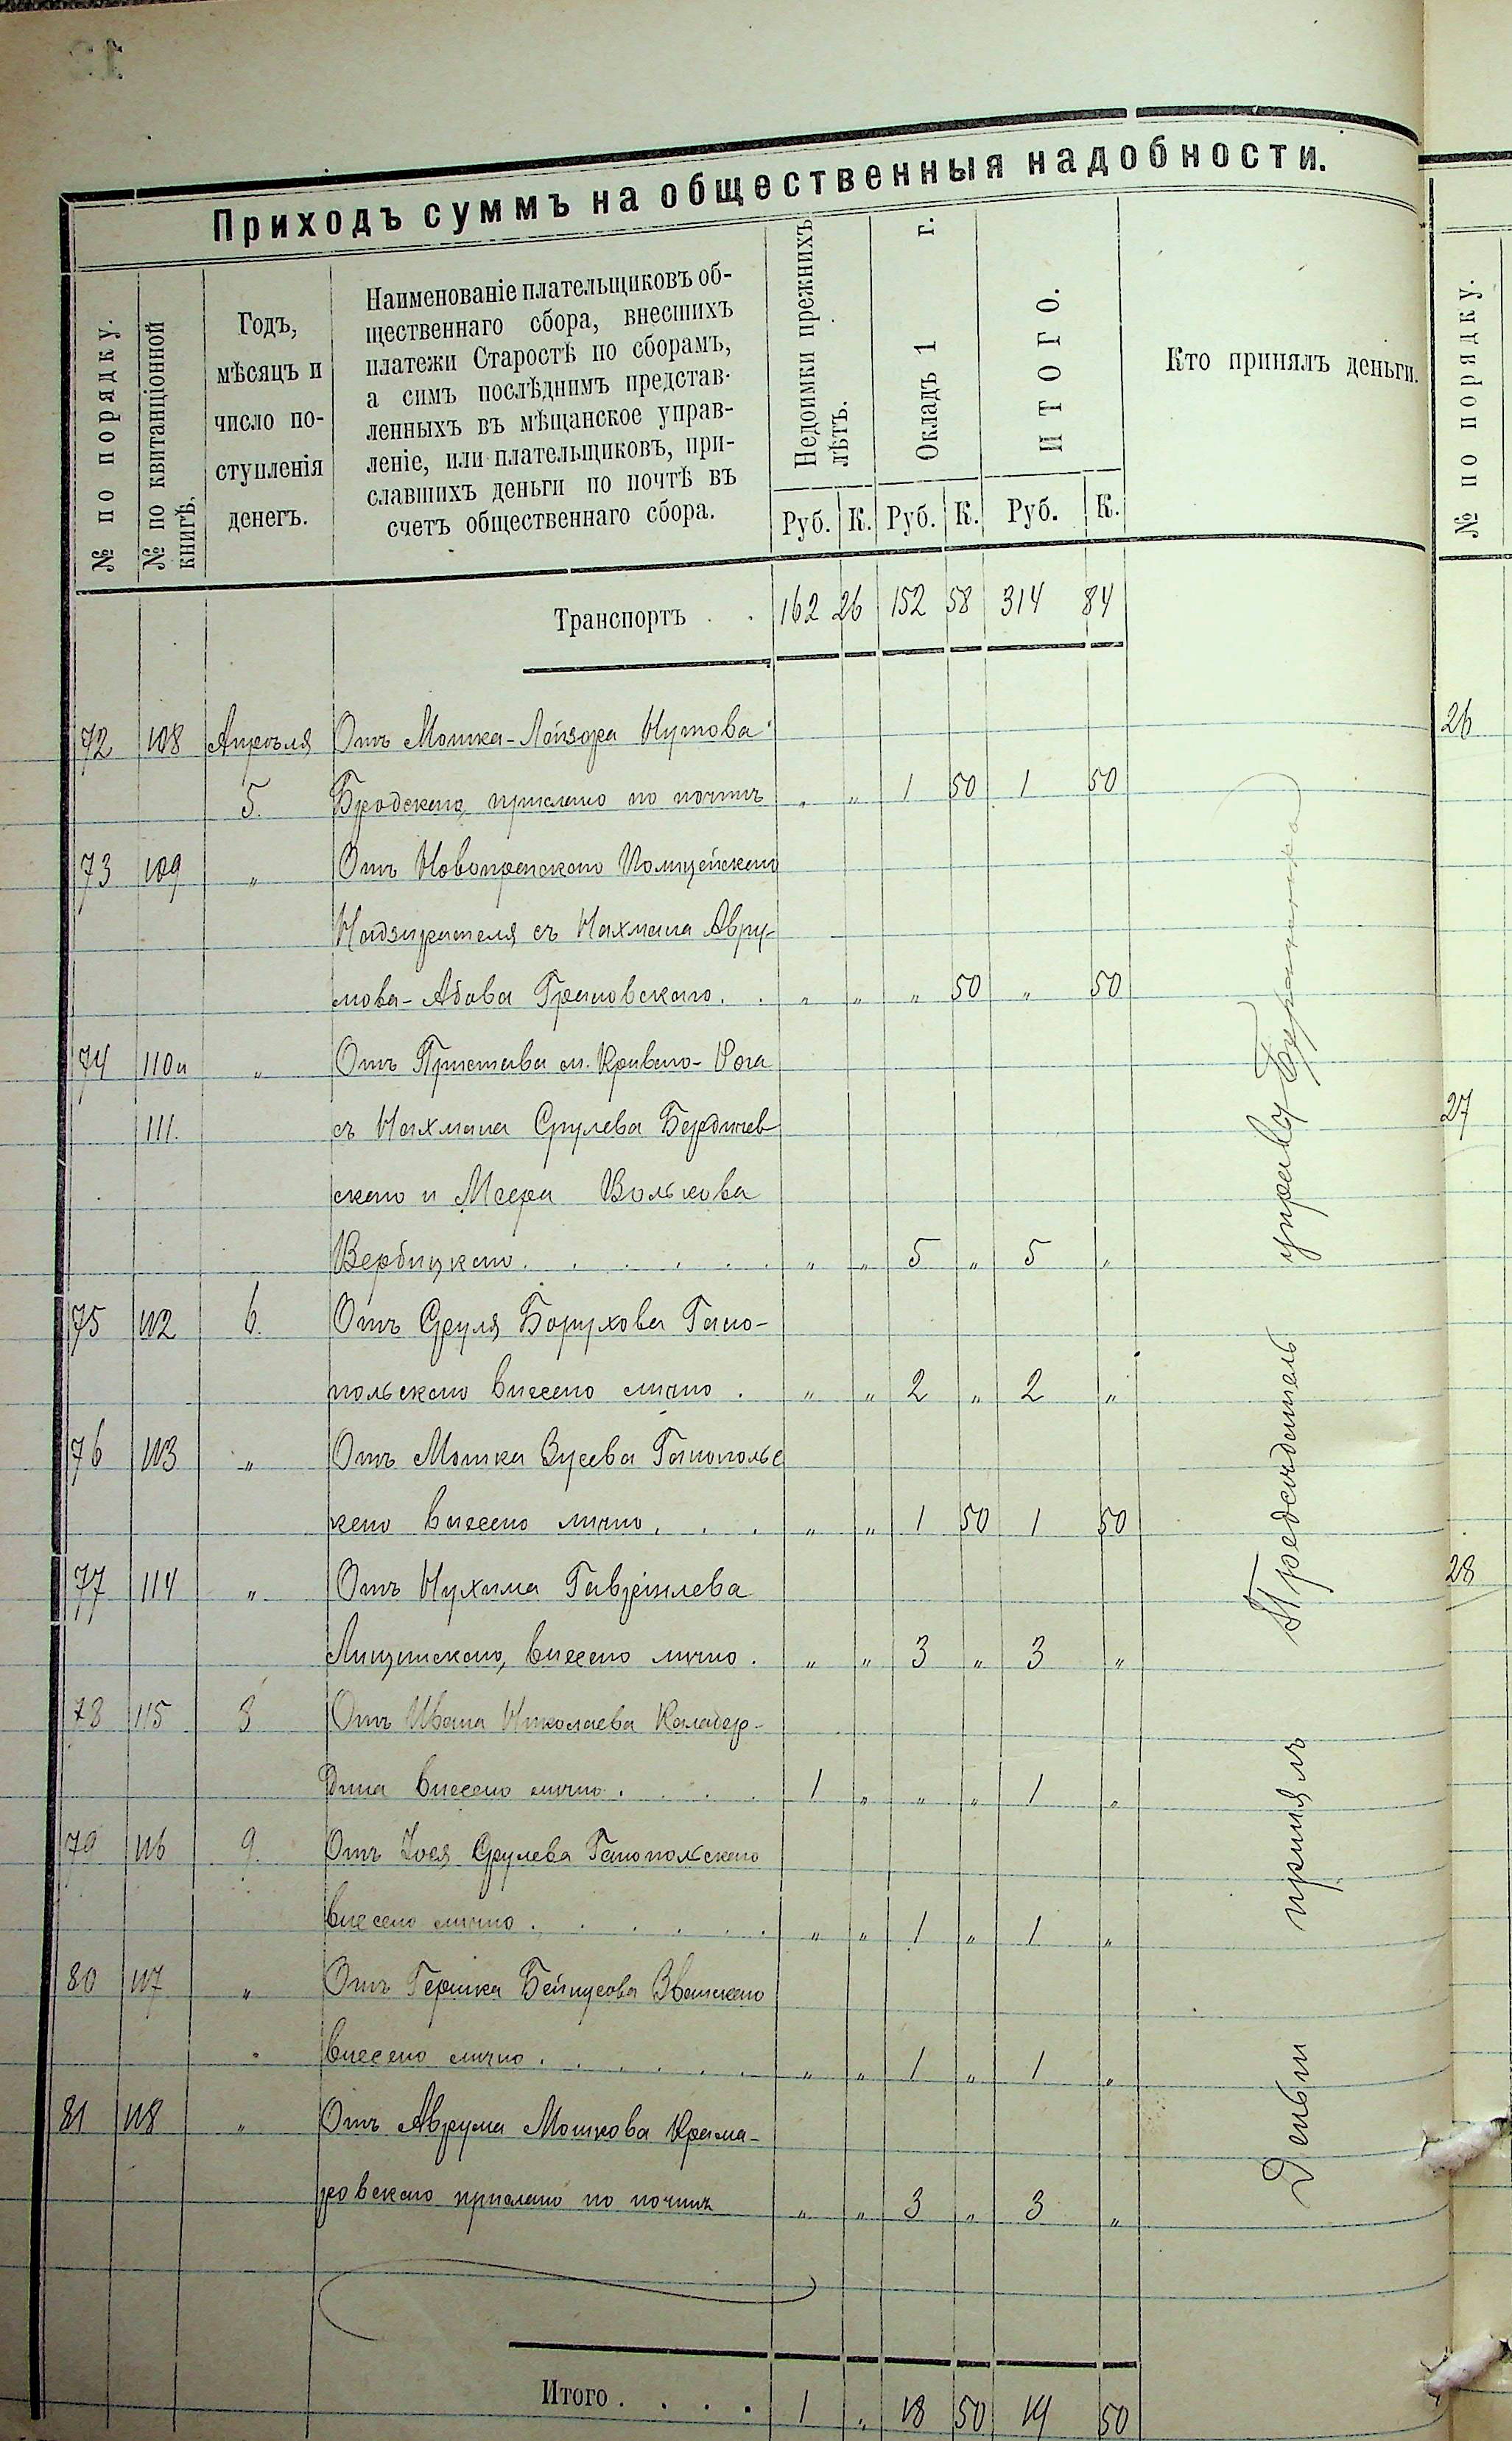 Приходъ суммъ на общественныя надобности.
№ по порядку.
№ по квитанціонной книгѣ.
Годъ,
мѣсяцъ и
число по-
ступленія
денегъ.
Наименованіе плательщиковъ об-
щественнаго сбора, внесшихъ
платежи Старостѣ по сборамъ,
а симъ послѣднимъ представ-
ленныхъ въ мѣщанское управ-
леніе, или плательщиковъ, при-
славшихъ деньги по почтѣ въ
счетъ общественнаго сбора.
Недоимки прежнихъ лѣтъ.
Окладъ 1 г.
ИТОГО.
Кто принялъ деньги.
Руб. К. Руб. К. Руб. К.
Транспортъ . . 162 26 152 58 314 84
72 108 Апрѣля Отъ Мошка-Лейзора Нутова
5. Бродскаго, прислано по почтѣ „ „ 1 50 1 50
73 109 „ Отъ Новопражскаго Полицейскаго
Надзирателя съ Нахмана Авру-
мова-Абова Грановскаго. . „ „ „ 50 „ 50
74 110 и „ Отъ Пристава м. Кривого-Рога
111. съ Нахмана Срулева Бердичев
скаго и Меера Волькова
Вербицкаго. . . . . . . „ „ 5 „ 5 „
75 112 6. Отъ Сруля Борухова Гано-
польскаго внесено лично . „ „ 2 „ 2 „
76 113 „ Отъ Мошка Зусева Ганопольс
каго внесено лично. . . . „ „ 1 50 1 50
77 114 „ Отъ Нухима Гавріилева
внесено лично. „ „ 3 „ 3 „
78 115 8 Отъ Ивана Николаева
внесено лично. . . . 1 „ „ „ 1 „
79 116 9. Отъ Іося Срулева Ганопольскаго
внесено лично . . . . . . „ „ 1 „ 1 „
80 117 „ Отъ Гершка Бейнусова
внесено лично . . . . . . „ „ 1 „ 1 „
81 118 „ Отъ Аврума Мошкова Крама-
ровскаго прислано по почтѣ „ „ 3 „ 3 „
Итого . . . . 1 „ 18 50 19 50
Деньги принялъ Предсѣдатель управы
№ по порядку.
26
27
28